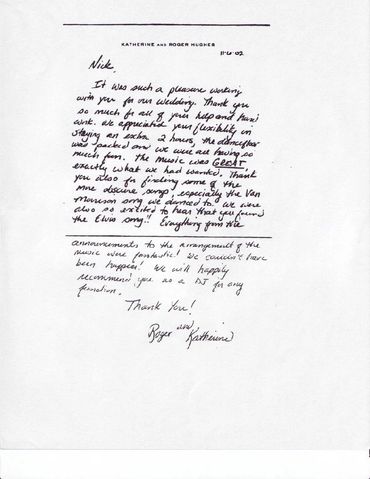 KATHERINE AND ROGER HUGHES
11-6-02
Nick,
It was such a pleasure working
with you for our wedding. Thank you
so much for all of your help and hard
work. We appreciated your flexibility in
staying an extra 2 hours, the dancefloor
was packed and we were all having so
much fun. The music was GREAT,
exactly what we had wanted. Thank
you also for finding some of the
more obscure songs, especially the Van
Morrison song we danced to. We were
also so excited to hear that you found
the Elvis song!! Everything from the
announcements to the arrangement of the
music were fantastic! We couldn't have
been happier. We will happily
recommend you as a DJ for any
function.
Thank You!
Roger and Katherine